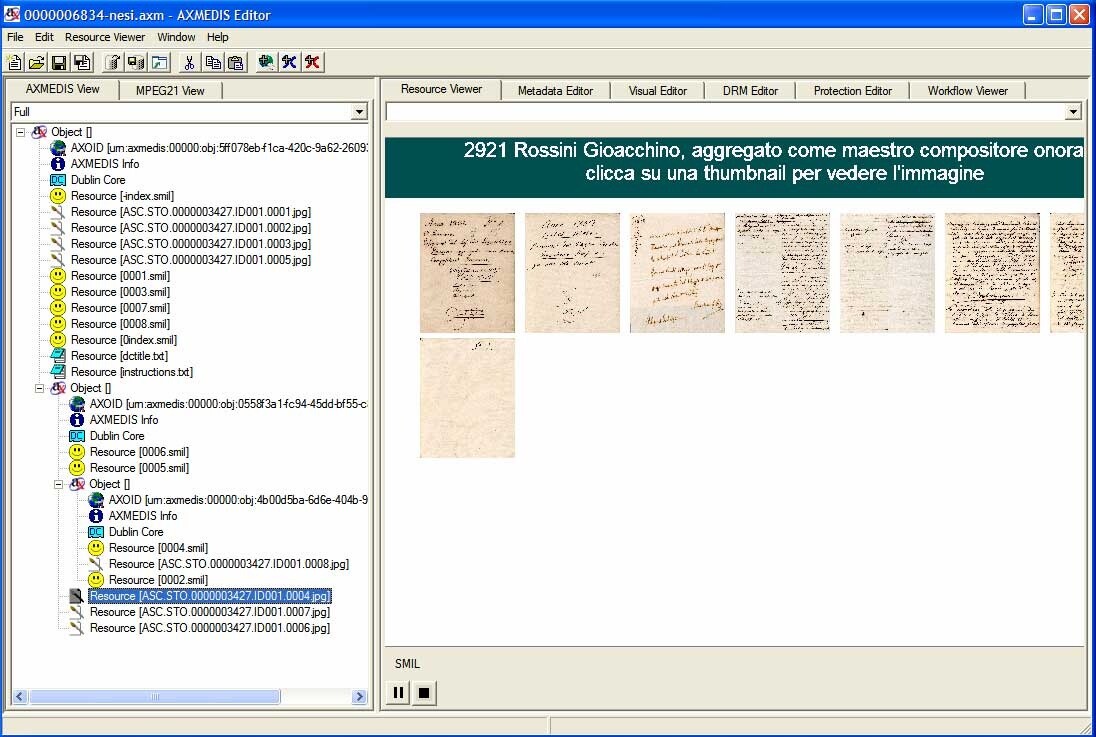 0000006834-nesi.axm - AXMEDIS Editor
File Edit Resource Viewer Window Help
AXMEDIS View MPEG21 View
Full
Object []
AXOID [urn:axmedis:00000:obj:5ff078eb-f1ca-420c-9a62-2609
AXMEDIS Info
Dublin Core
Resource [-index.smil]
Resource [ASC.STO.0000003427.ID001.0001.jpg]
Resource [ASC.STO.0000003427.ID001.0002.jpg]
Resource [ASC.STO.0000003427.ID001.0003.jpg]
Resource [ASC.STO.0000003427.ID001.0005.jpg]
Resource [0001.smil]
Resource [0003.smil]
Resource [0007.smil]
Resource [0008.smil]
Resource [0index.smil]
Resource [dctitle.txt]
Resource [instructions.txt]
Object []
AXOID [urn:axmedis:00000:obj:0558f3a1-fc94-45dd-bf55-c
AXMEDIS Info
Dublin Core
Resource [0006.smil]
Resource [0005.smil]
Object []
AXOID [urn:axmedis:00000:obj:4b00d5ba-6d6e-404b-9
AXMEDIS Info
Dublin Core
Resource [0004.smil]
Resource [ASC.STO.0000003427.ID001.0008.jpg]
Resource [0002.smil]
Resource [ASC.STO.0000003427.ID001.0004.jpg]
Resource [ASC.STO.0000003427.ID001.0007.jpg]
Resource [ASC.STO.0000003427.ID001.0006.jpg]
Resource Viewer Metadata Editor Visual Editor DRM Editor Protection Editor Workflow Viewer
2921 Rossini Gioacchino, aggregato come maestro compositore onora
clicca su una thumbnail per vedere l'immagine
SMIL